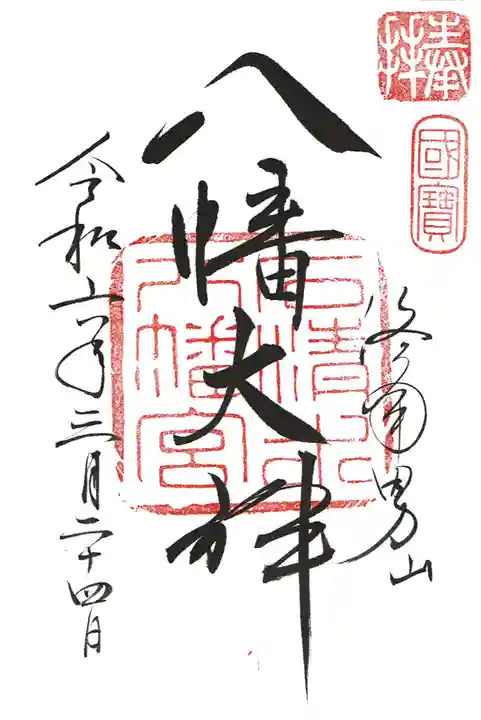 奉拝
國寶
洛南男山
八幡大神
石清水八幡宮
令和六年三月二十四日